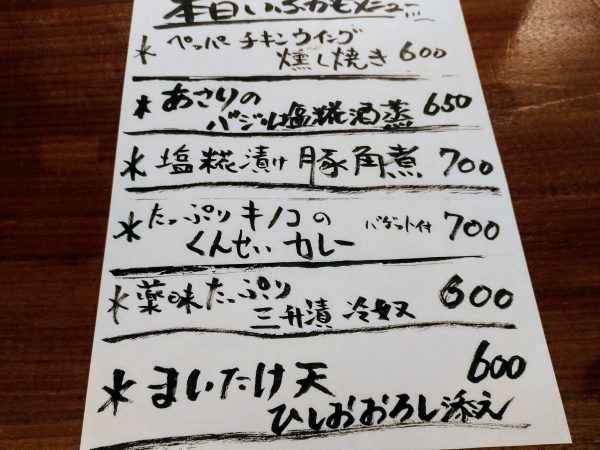 本日いぶかもメニュー
* ペッパーチキンウイング
燻し焼き 600
* あさりの
バジル塩糀酒蒸 650
* 塩糀漬け 豚角煮 700
* たっぷりキノコの
くんせいカレー バゲット付 700
* 薬味たっぷり
三升漬 冷奴 600
* まいたけ天 600
ひしおおろし添え